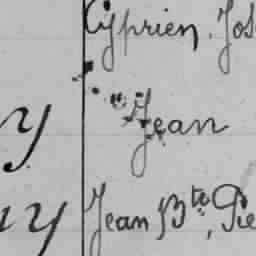 Cyprien. Jos
y Jean
y Jean Bte, Pie